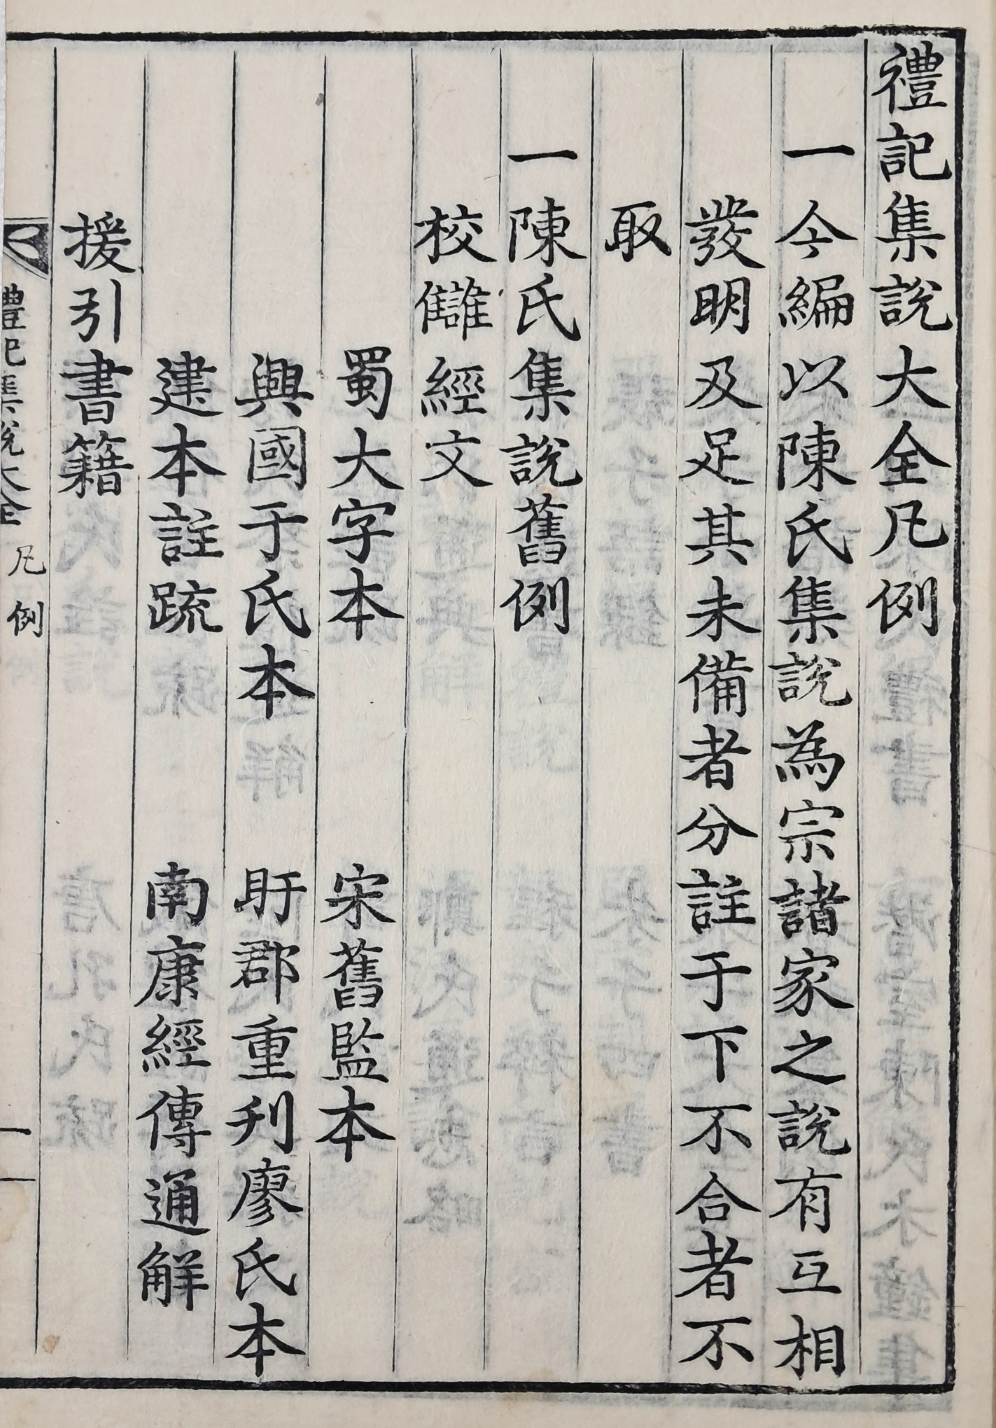 禮記集說大全凡例
一今編以陳氏集說為宗諸家之說有互相
發明及足其未備者分註于下不合者不
取
一陳氏集說舊例
校讎經文
蜀大字本 宋舊監本
興國于氏本 盱郡重刋廖氏本
建本註䟽 南康經傳通解
援引書籍
禮記集說大全 凡例 一